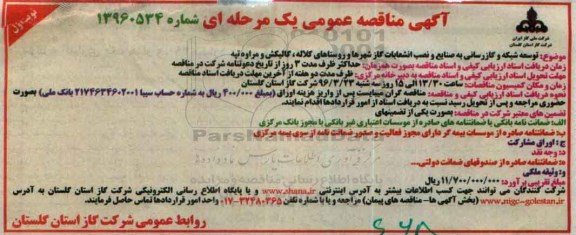 نوبت اول
آگهی مناقصه عمومی یک مرحله ای شماره ۱۳۹۶۰۵۳۴
شرکت ملی گاز ایران
شرکت گاز استان گلستان
موضوع: توسعه شبکه و گازرسانی به صنایع و نصب انشعابات گاز شهرها و روستاهای کلاله، گالیکش و مراوه تپه
زمان دریافت اسناد ارزیابی کیفی و اسناد مناقصه بصورت همزمان: حداکثر ظرف مدت ۳ روز از تاریخ دعوتنامه شرکت در مناقصه
مهلت تحویل اسناد ارزیابی کیفی و اسناد مناقصه به دبیرخانه مرکزی: ظرف مدت دو هفته از آخرین مهلت دریافت اسناد مناقصه
زمان و مکان کمیسیون مناقصات: ساعت ۱۳/۳۰ الی ۱۵ روز سه شنبه ۹۶/۳/۲۳ شرکت گاز استان گلستان
نحوه دریافت اسناد ارزیابی کیفی و اسناد مناقصه: مناقصه گران میبایست پس از واریز هزینه اوراق (بمبلغ ۴۰۰/۰۰۰ ریال به شماره حساب سیبا ۲۱۷۴۶۳۴۶۰۲۰۰۱ بانک ملی) بصورت
حضوری مراجعه و پس از تحویل رسید نسبت به دریافت اسناد از امور قراردادها اقدام نمایند.
تضمین های معتبر شرکت در مناقصه: بصورت یکی از تضمینهای
الف: ضمانت نامه بانکی یا ضمانتنامه های صادره از موسسات اعتباری غیر بانکی با مجوز بانک مرکزی
ب: ضمانتنامه صادره از موسسات بیمه گر دارای مجوز فعالیت و صدور ضمانت نامه از سوی بیمه مرکزی
ج: اوراق مشارکت
د: وجه نقد
ه: ضمانتنامه صادره از صندوقهای ضمانت دولتی...
و: وثیقه ملکی
مبلغ تقریبی برآورد: ۱۱/۷۰۰/۰۰۰/۰۰۰ ریال
شرکت کنندگان می توانند جهت کسب اطلاعات بیشتر به آدرس اینترنتی www.shana.ir و یا پایگاه اطلاع رسانی الکترونیکی شرکت گاز استان گلستان به آدرس
www.nigc-golestan.ir (بخش آگهی ها- مناقصه های پیمان) مراجعه و یا با شماره تلفن ۳۲۴۸۰۳۶۵-۰۱۷ واحد امور قراردادها تماس حاصل فرمایند.
روابط عمومی شرکت گاز استان گلستان